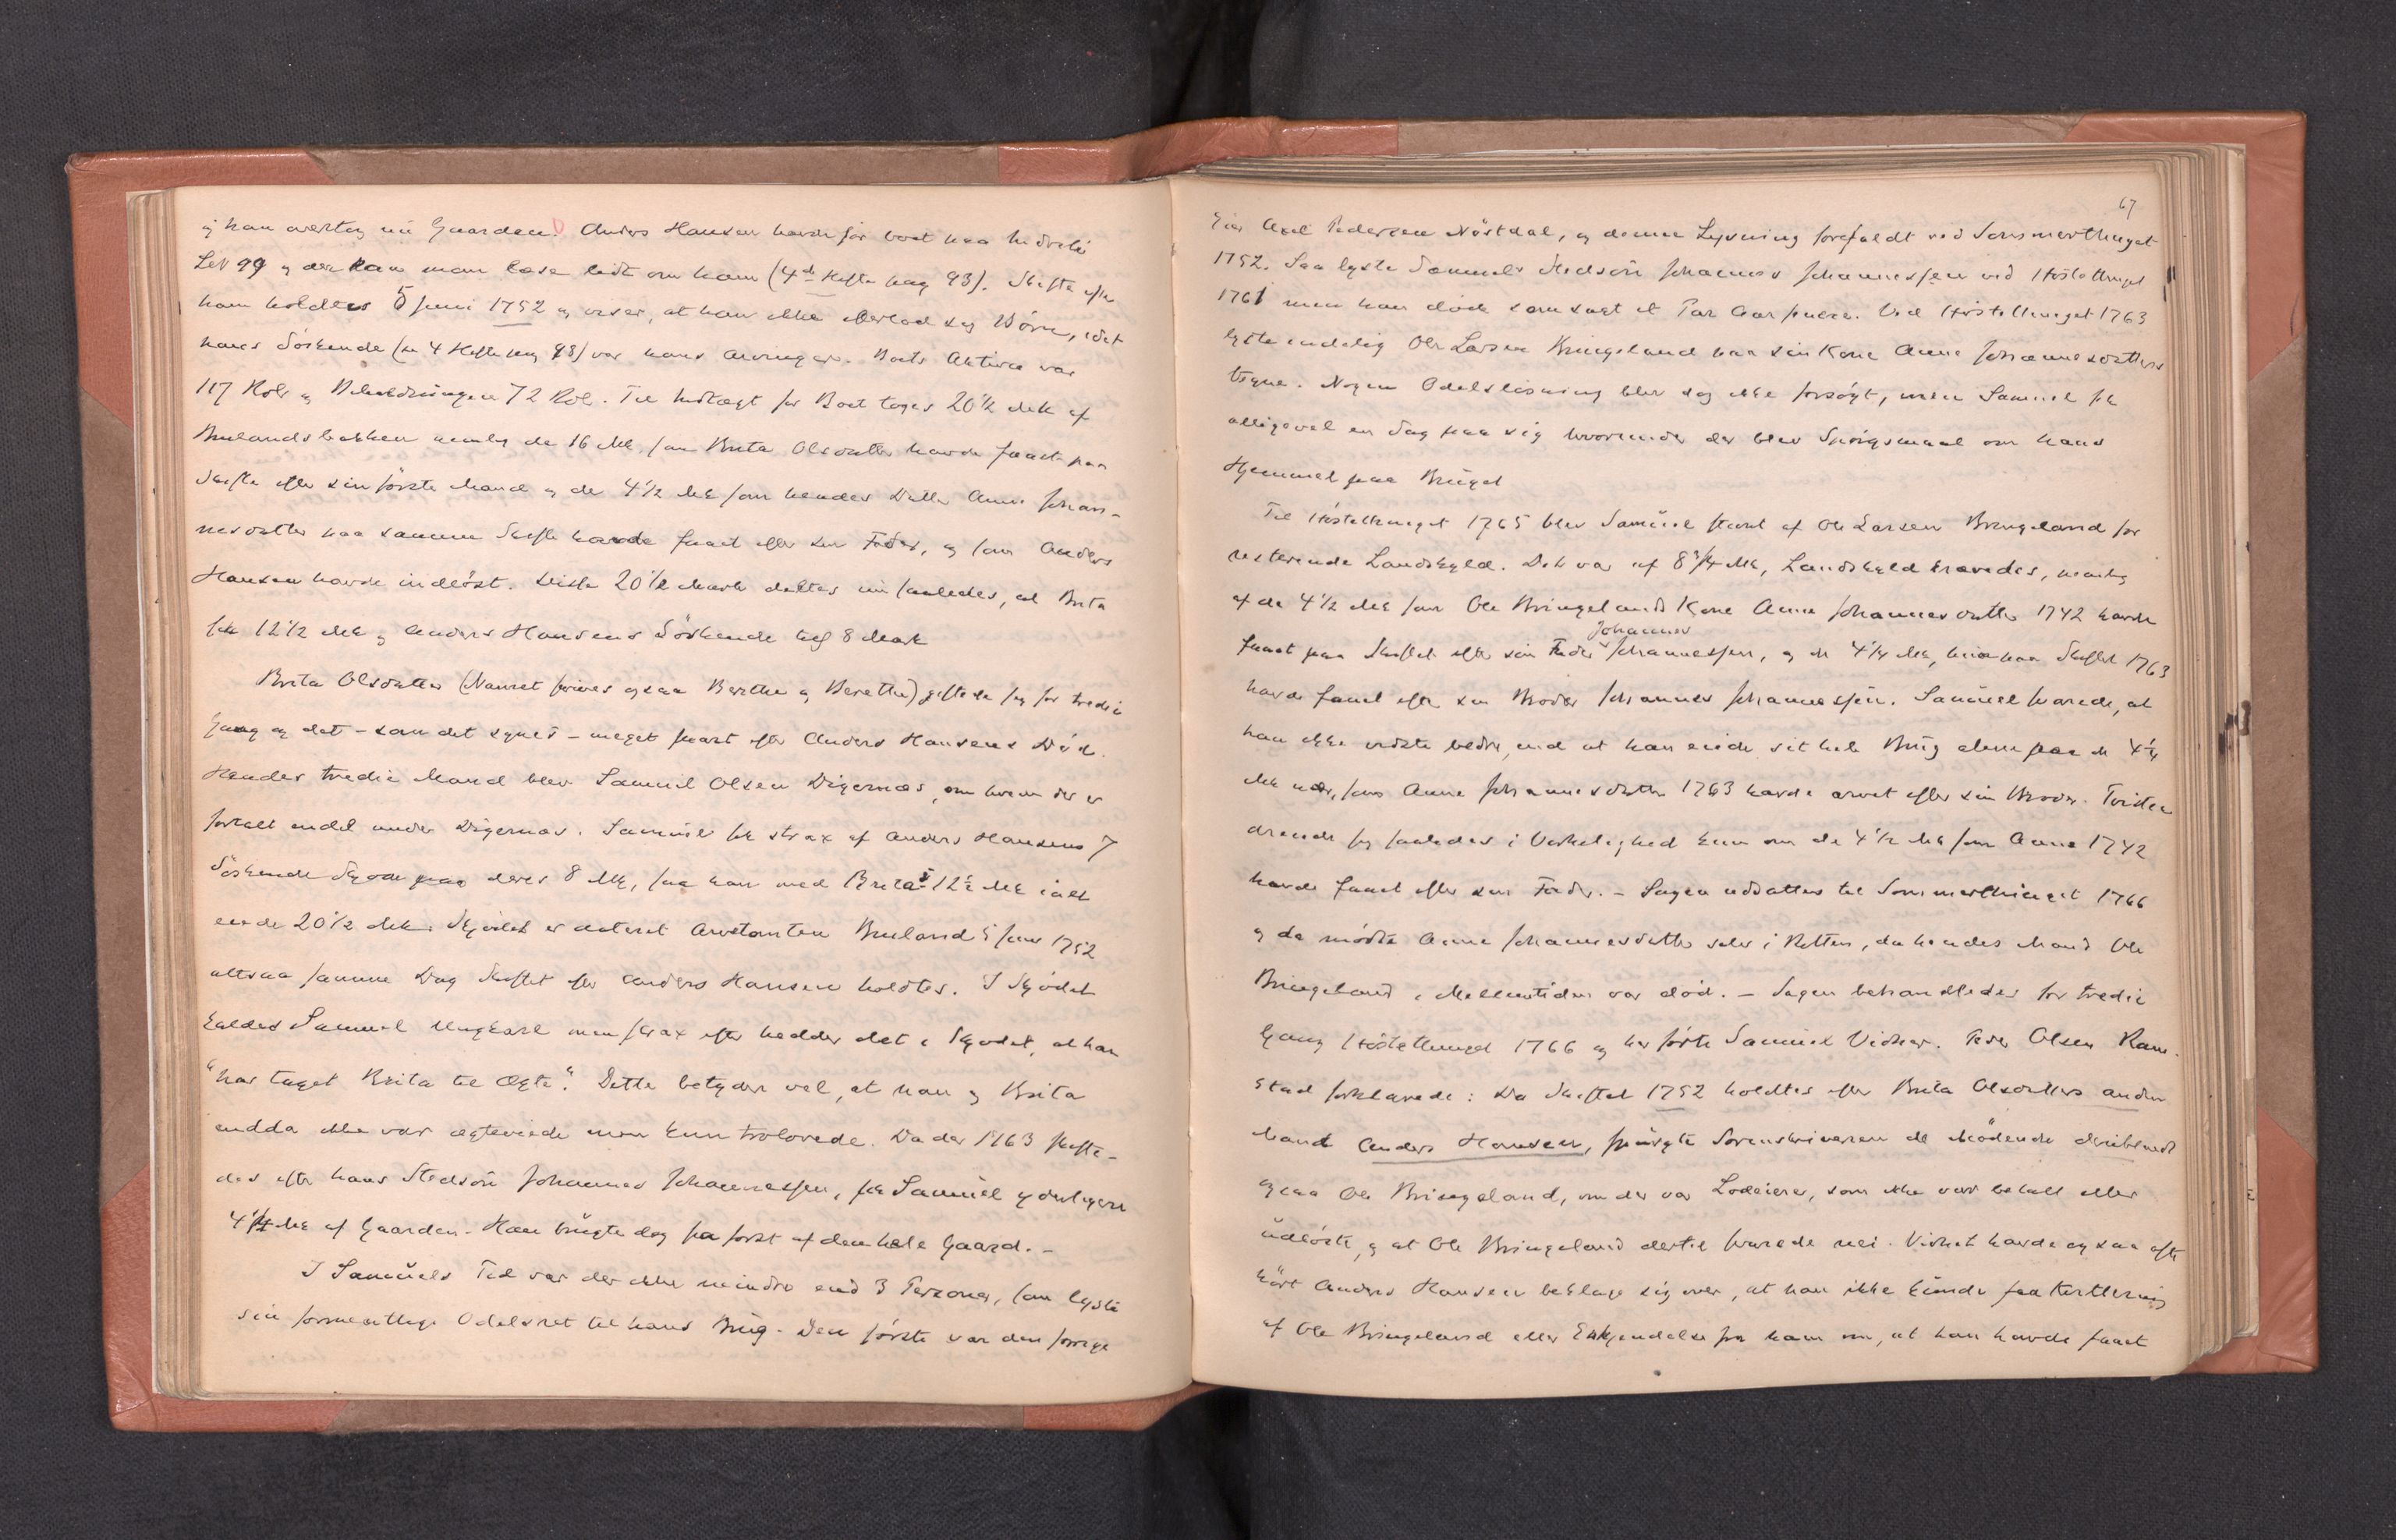 og han overtog nu Gaarden. Anders Hansen havde før boet paa Nedrelie
Løb 99 og der kan man læse lidt om ham (4de Hefte pag 93). Skifte efter
ham holdtes 5 Juni 1752 og viser, at han ikke efterlod sig Börn, idet
hans Söskende (se 4 Hefte pag 93) var hans Arvinger. Boets Aktiva var
117 Rdlr og Beholdningen 72 Rdl. Til Indtægt for Boet toges 20½ Mk af
Brulandsbakken nemlig de 16 Mk som Brita Olsdatter havde faaet paa
Skifte efter sin förste Mand og de 4½ Mk som hendes Datter Anne Johan-
nesdatter paa samme Skifte havde faaet efter sin Fader, og som Anders
Hansen havde indlöst. Disse 20½ Mark deltes nu saaledes, at Brita
fik 12½ Mk og Anders Hansens Söskende tils 8 Mark
Brita Olsdatter (Navnet skrives ogsaa Berthe og Berethe) giftede sig for tredie
Gang og det - som det synes - meget snart efter Anders Hansens Död.
Hendes tredie Mand blev Samuel Olsen Digernæs, om hvem der er
fortalt endel under Digernæs. Samuel fik strax af Anders Hansens 7
Söskende Skjöde paa deres 8 Mk, saa han med Brita's 12½ Mk ialt
eiede 20½ Mk. Skjödet er dateret Arvetomten Bruland 5 Juni 1752
altsaa samme Dag Skiftet efter Anders Hansen holdtes. I Skjödet
kaldes Samuel Ungkarl men strax efter hedder det i Skjödet, at han
"har taget Brita til Ægte". Dette betyder vel, at han og Brita
endda ikke var ægteviede men kun trolovede. Da der 1763 skifte-
des efter hans Stedsön Johannes Johannessen, fik Samuel yderligere
4¼ Mk af Gaarden. Han brugte dog fra först af den hele Gaard. -
I Samuels Tid var der ikke mindre end 3 Personer, som lyste
sin formentlige Odelsret til hans Brug. Den förste var den forrige
67
Eier Axel Pedersen Nöstdal, og denne Lysning forefaldt ved Sommerthinget
1752. Saa lyste Samuels Stedsön Johannes Johannessen ved Höstethinget
1761 men han döde som sagt et Par Aar senere. Ved Höstethinget 1763
lyste endelig Ole Larsen Bringeland paa sin Kone Anne Johannesdatters
Vegne. Nogen Odelslösning blev dog ikke forsögt, men Samuel fik
alligevel en Sag paa sig hvorunder der blev Spörgsmaal om hans
Hjemmel paa Bruget
Til Höstethinget 1765 blev Samuel stevnt af Ole Larsen Bringeland for
resterende Landskyld. Det var af 8¾ Mk, Landskyld krævedes, nemlig
af de 4½ Mk som Ole Bringelands Kone Anne Johannesdatter 1742 havde
faaet paa Skiftet efter sin Fader Johannes Johannessen, og de 4¼ Mk, hun paa Skiftet 1763
havde faaet efter sin Broder Johannes Johannessen. Samuel svarede, at
han ikke vidste bedre, end at han eiede sit hele Brug alene paa de 4¼
Mk nær, som Anne Johannesdatter 1763 havde arvet efter sin Broder. Tvisten
dreiede sig saaledes i Virkelighed kun om de 4½ Mk som Anne 1742
havde faaet efter sin Fader. - Sagen udsattes til Sommerthinget 1766
og da mödte Anne Johannesdatter selv i Retten, da hendes Mand Ole
Bringeland i Mellemtiden var död. - Sagen behandledes for tredie
Gang Höstethinget 1766 og her förte Samuel Vidner. Peder Olsen Ram-
stad forklarede: Da Skiftet 1752 holdtes efter Brita Olsdatters anden
Mand Anders Hansen, spurgte Sorenskriveren de Mödende deriblandt
ogsaa Ole Bringeland, om der var Lodeiere, som ikke var betalt eller
udlöste, og at Ole Bringeland dertil svarede nei. Vidnet havde ogsaa ofte
hört Anders Hansen beklage sig over, at han ikke kunde faa Kvittering
af Ole Bringeland eller Erkjendelse fra ham om, at han havde faaet